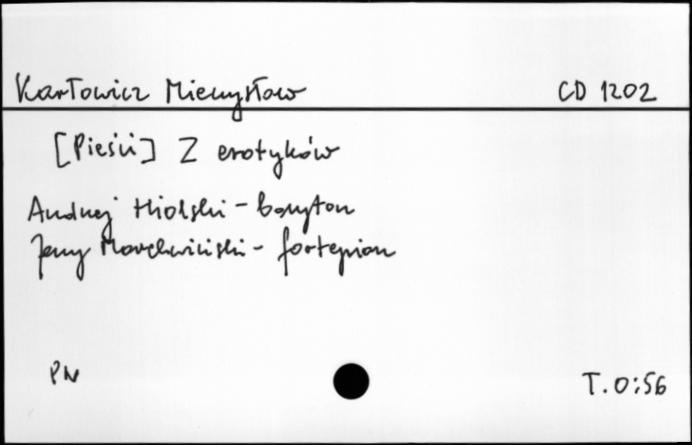 Karłowicz Mieczysław CD 1202
[Pieśni] Z erotyków
Andrzej Hiolski - baryton
Jerzy Marchwiński - fortepian
PN T. 0:56